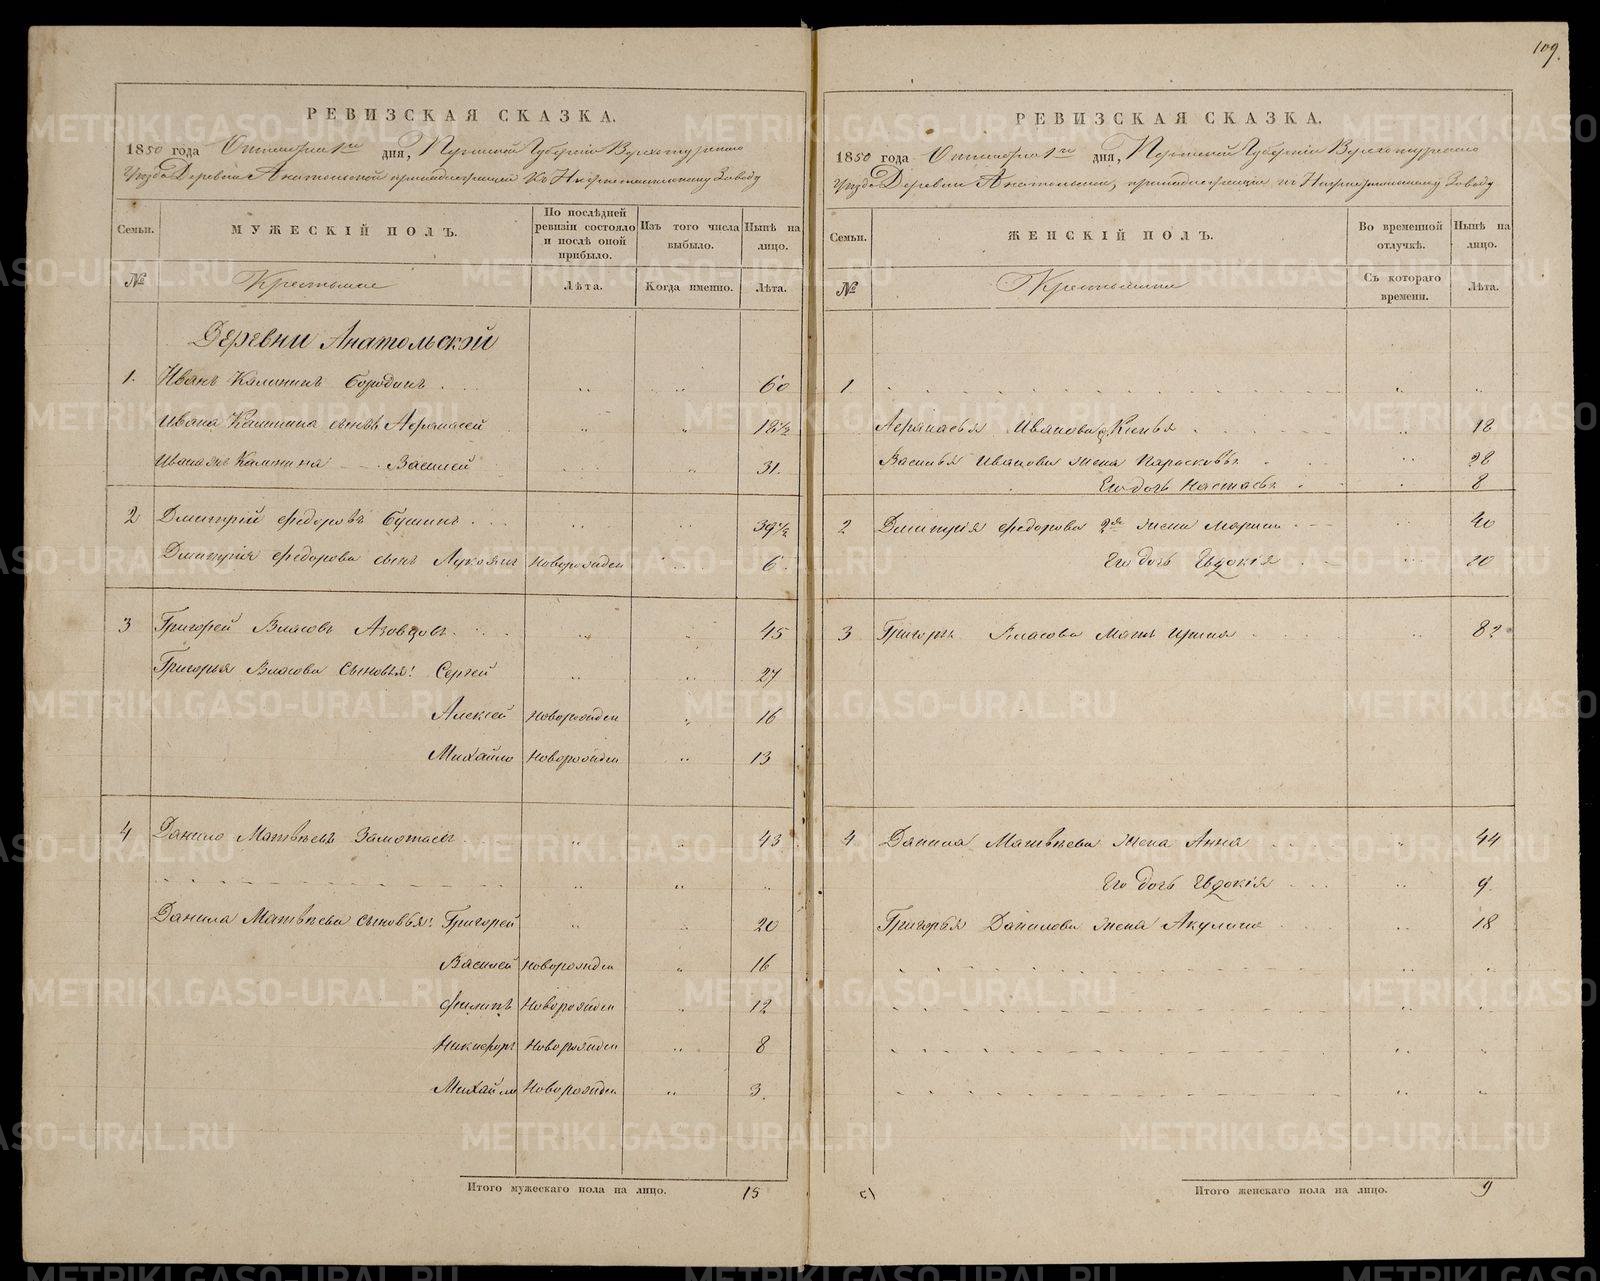 109.
РЕВИЗСКАЯ СКАЗКА.
1850 года Октября 1го дня, Пермской Губернии Верхотурскаго
Уезда Деревни Анатольской принадлежащей къ Нижнетагильскому Заводу
Семьи.
МУЖЕСКІЙ ПОЛЪ.
По послѣдней ревизіи состояло и послѣ оной прибыло.
Изъ того числа выбыло.
Нынѣ на лицо.
№
Крестьяне
Лѣта.
Когда именно.
Лѣта.
Деревни Анатольской
1. Иванъ Калининъ Бородинъ 60
Ивана Калинина сынъ Афанасей 18½
Ивана Калинина Василей 31.
2 Дмитрій Федоровъ Бушинъ 39½
Дмитрія Федорова сынъ Лукоянъ Новорожден 6
3 Григорей Власовъ Азовцовъ 45
Григорья Власова Сыновья: Сергей 27
Алексей Новорожден 16
Михайло Новорожден 13
4 Данило Матвѣевъ Замотаевъ 43
Данила Матвѣева сыновья: Григорей 20
Василей Новорожден 16
Филипъ Новорожден 12
Никифоръ Новорожден 8
Михайло Новорожден 3.
Итого мужескаго пола на лицо. 15
РЕВИЗСКАЯ СКАЗКА.
1850 года Октября 1го дня, Пермской Губернии Верхотурскаго
Уезда Деревни Анатольской, принадлежащей къ Нижнетагильскому Заводу
Семьи.
ЖЕНСКІЙ ПОЛЪ.
Во временной отлучкѣ.
Нынѣ на лицо.
№
Крестьянки
Съ котораго времени.
Лѣта.
1
Афанасья Иванова 18
Василья Иванова жена Парасковья 28
Его дочь Настасья 8
2 Дмитрія Федорова 2я жена Марина 40
Его дочь Евдокія 20
3 Григорья Власова Мать Ирина 82
4 Данила Матвѣева Жена Анна 44
Его дочь Евдокія 9.
Григорья Данилова жена Акулина 18
Итого женскаго пола на лицо. 9
METRIKI.GASO-URAL.RU